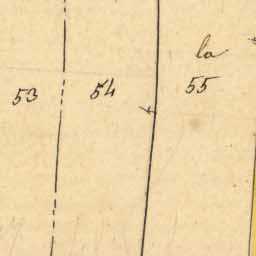 la
53 54 55